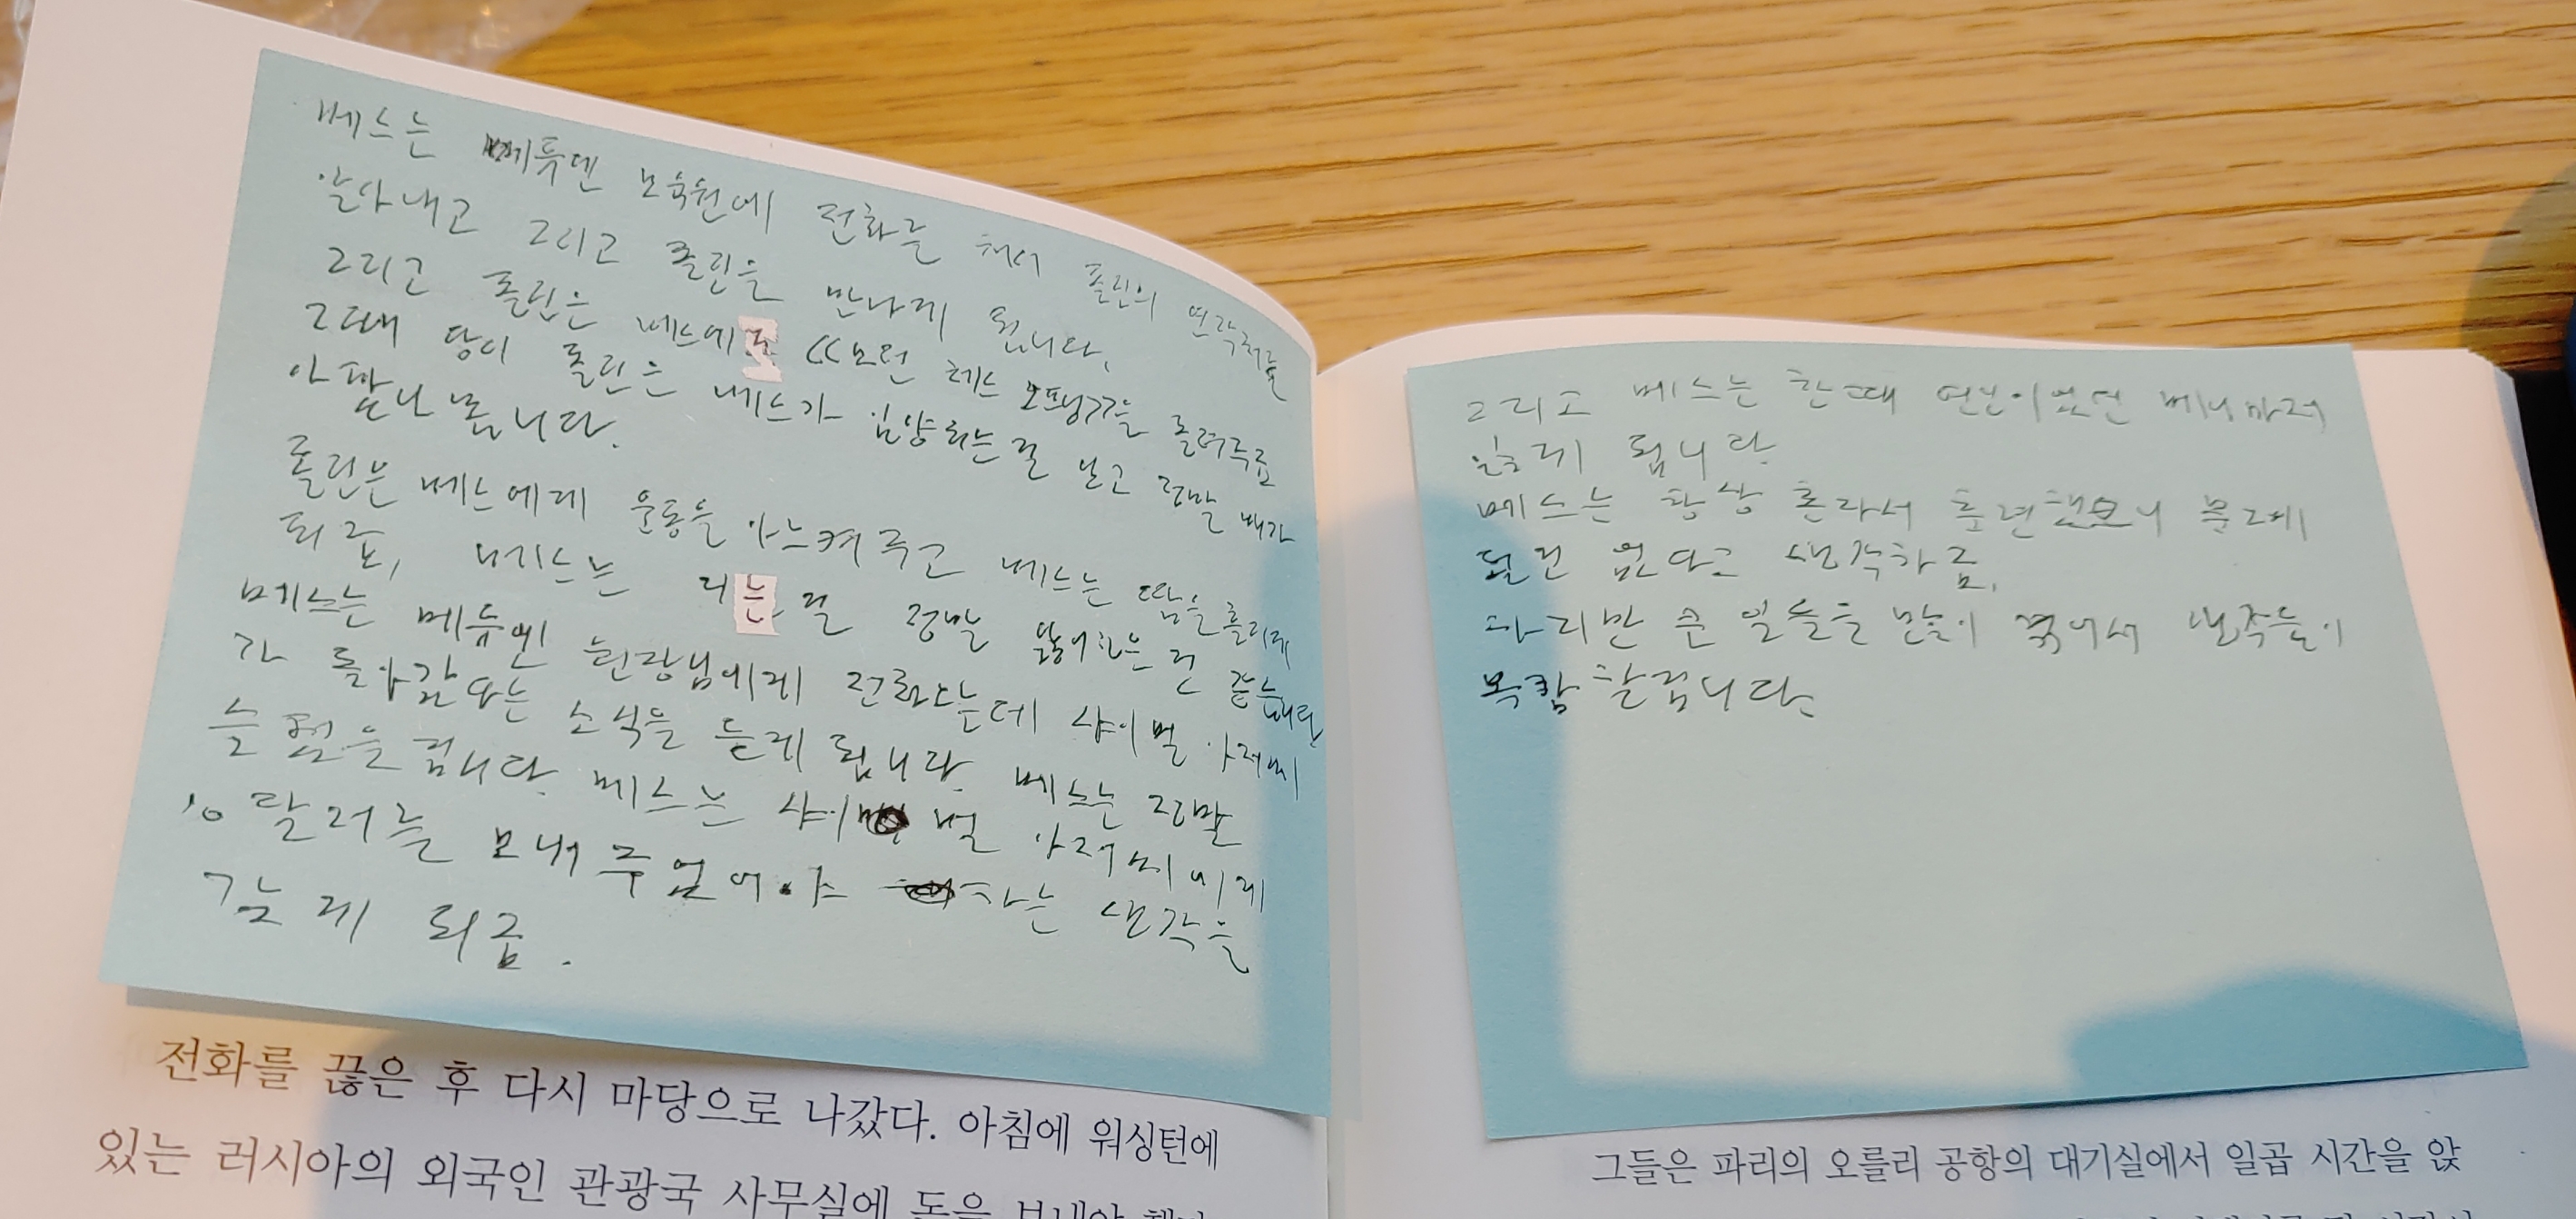 베스는 메듀덴 보육원에 전화를 해서 졸린의 연락처를
알아내고 그리고 졸린을 만나게 됩니다.
그리고 졸린은 베스에 《모던 체스 오프닝》을 돌려주죠
그때 당시 졸린은 베스가 입양되는걸 보고 정말 배가
아팠나 봅니다.
졸린은 베스에게 운동을 가르켜주고 베스는 땀을 흘리게
되죠, 베스는 지는 걸 정말 싫어하는 것
베스는 메듀덴 원장님에게 전화하는데 샤이벌 아저씨
가 돌아갔다는 소식을 듣게 됩니다. 베스는 정말
슬펐을겁니다. 베스는 샤이벌 아저씨에게
10달러를 보내주었어야 하는 생각을
갖게 되죠.
전화를 끊은 후 다시 마당으로 나갔다. 아침에 워싱턴에
있는 러시아의 외국인 관광국 사무실에 돈을
그리고 베스는 한때 연인이었던 베니마저
잃게 됩니다
베스는 항상 혼자서 훈련했으니 문제
될건 없다고 생각하죠.
하지만 큰 일들을 많이 겪어서 생각들이
복잡할겁니다.
그들은 파리의 오를리 공항의 대기실에서 일곱 시간을 앉